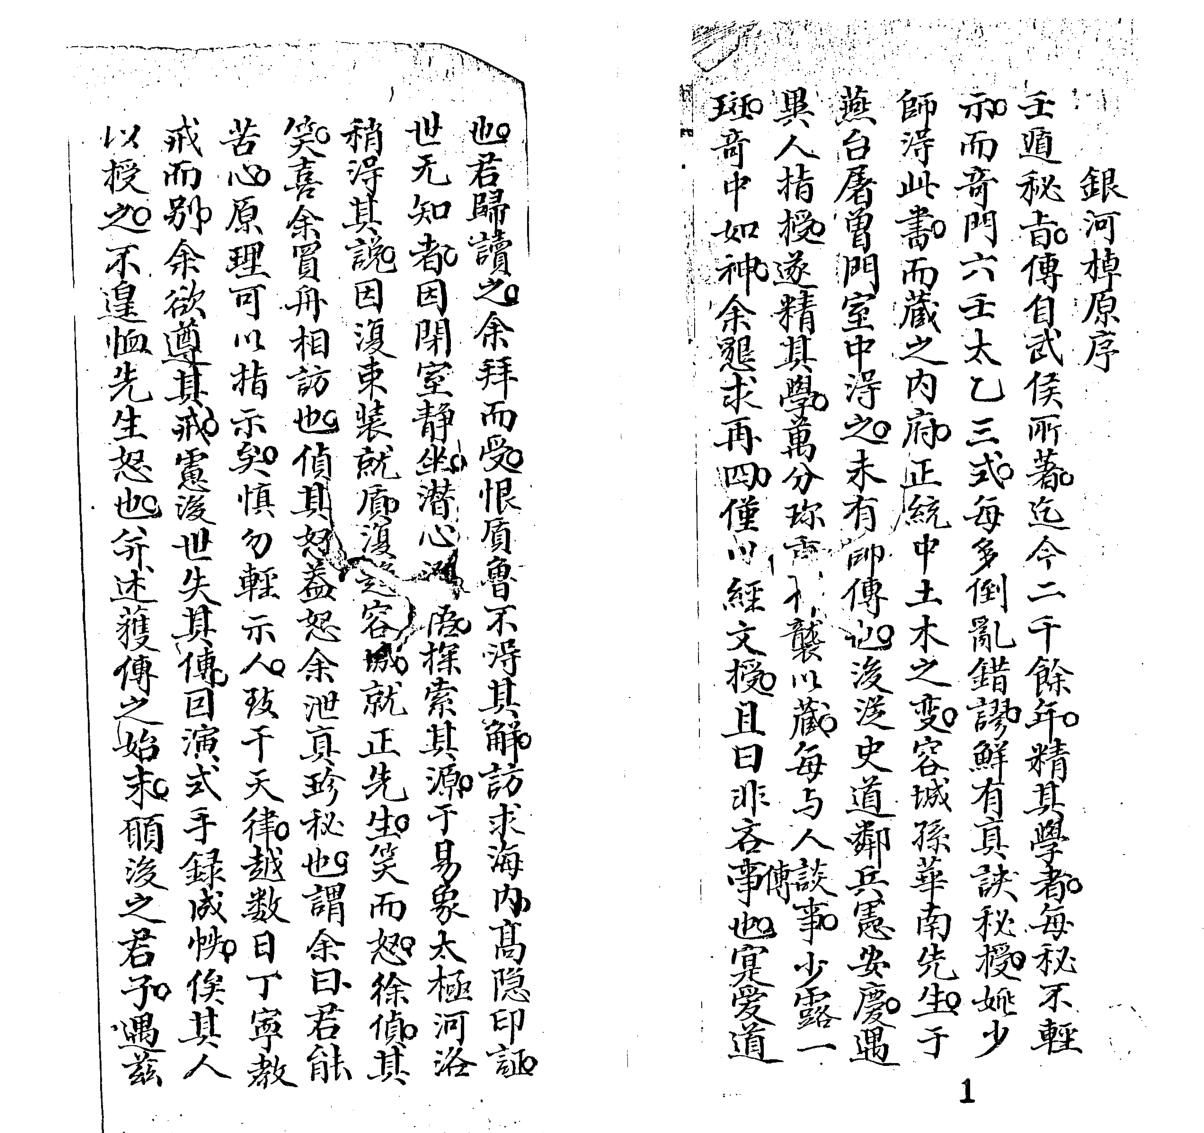 銀河棹原序
壬遁秘旨傳自武侯所著迄今二千餘年精其學者每秘不輕
示而竒門六壬太乙三式每多倒亂錯謬鮮有真訣秘授姚少
師淂此書而藏之内府正統中土木之变容城孫華南先生于
燕台屠曽門室中淂之未有師傳也後従史道鄰兵憲安慶遇
異人指授遂精其學萬分珎襲以藏每与人談事少露一
斑竒中如神余懇求再四僅以經文授且曰非吝事傳也寔爱道
也君歸讀之余拜而受恨質魯不淂其解訪求海内髙隐印証
世无知者因閉室静坐潜心悟探索其源于易象太極河洛
稍淂其説因復束装就質復趋容城就正先生笑而怒徐偵其
笑喜余買舟相訪也偵其怒盖怒余泄真珍秘也謂余曰君能
苦心原理可以指示矣慎勿輕示人致干天律越数日丁寧教
戒而别余欲遵其戒慮後世失其傳回演式手録成帙俟其人
以授之不遑恤先生怒也并述獲傳之始末願後之君子遇兹
1